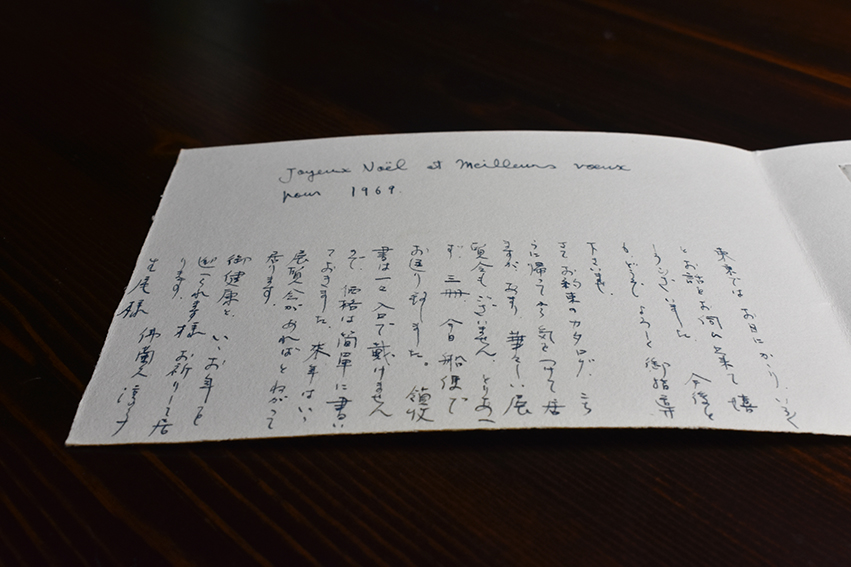 Joyeux Noël et Meilleurs vœux
pour 1969.
東京では お目にかゝり、いろ〱
とお話をお伺ひ出来て 嬉
しうございました。 今後と
も どうぞ よろしく 御指導
下さいませ。
さて お約束のカタログ、こち
らに帰ってから気をつけて居
ますが、あまり 華々しい展
覧会もございません。とりあへ
ず、三冊、今日 船便で
お送り致しました。領收
書は一々 入口で 戴けません
ので、価格は簡単に書い
ておきました。来年はいゝ
展覧会があればとねがって
居ります。
御健康と、いゝお年を
迎へられます様 お祈りして居
ります。
様 淳子